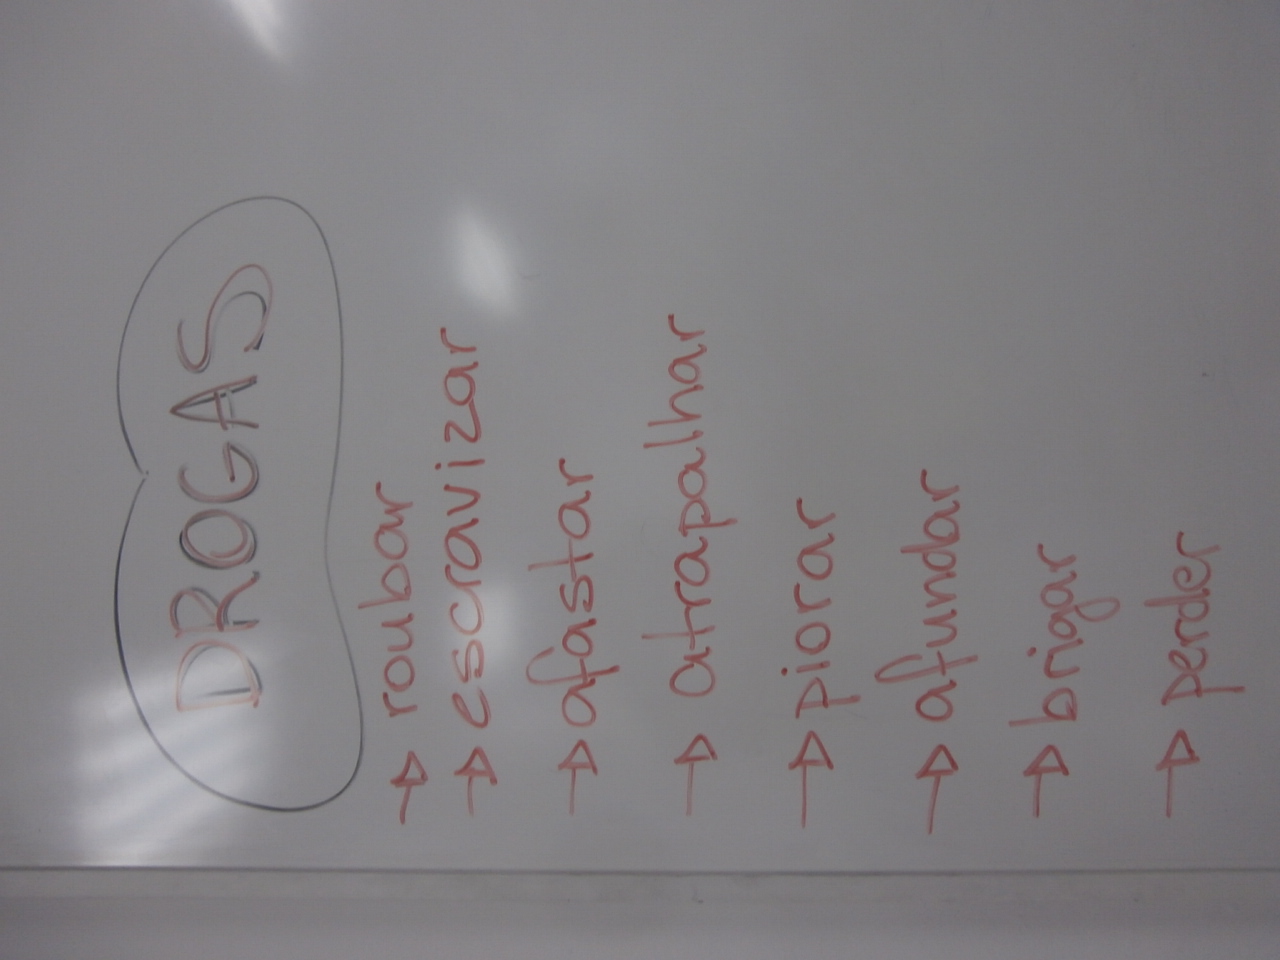 DROGAS
→ roubar
→ escravizar
→ afastar
→ atrapalhar
→ piorar
→ afundar
→ brigar
→ perder